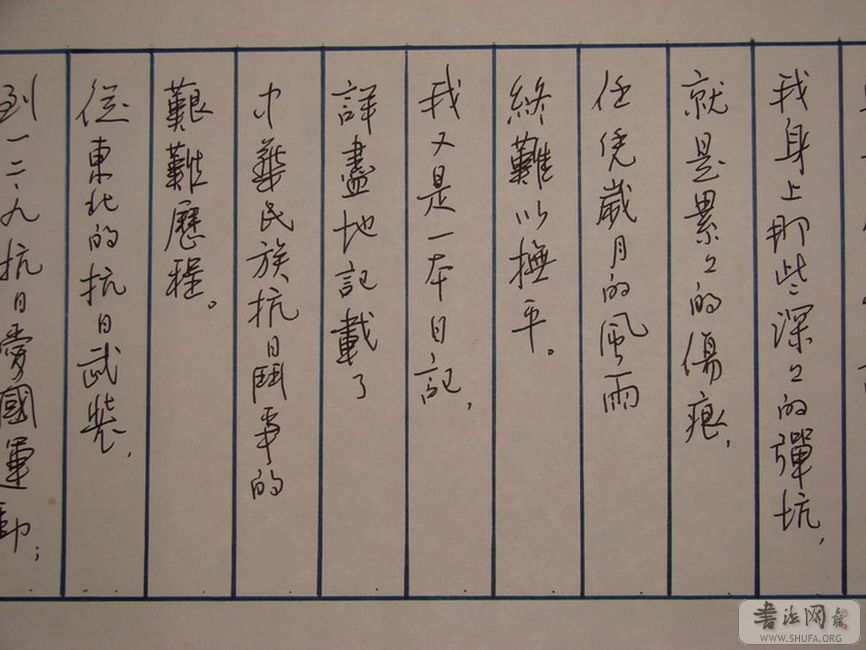 我身上那些深々的彈坑，
就是累々的傷痕，
任凭歲月的風雨
終難以撫平。
我又是一本日記，
詳盡地記載了
中華民族抗日鬥爭的
艱難歷程。
從東北的抗日武裝，
到一二、九抗日愛國運動；
書法网
WWW.SHUFA.ORG